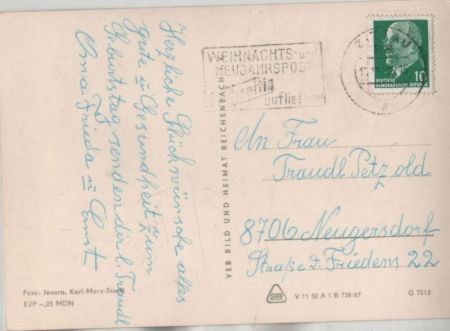 Herzliche Glückwünsche alles
gute u Gesundheit zum
Geburtstag senden der l. Traudl
Oma Frieda u Ernst
Foto: Jesora, Karl-Marx-Stadt
EVP –,25 MDN
VEB BILD UND HEIMAT REICHENBACH
WEIHNACHTS- und
NEUJAHRSPOST
aufliefern
10
DEUTSCHE
DEMOKRATISCHE REPUBLIK
An Frau
Traudl Petzold
8706 Neugersdorf
Straße d. Friedens 22
V 11 50 A 1 B 739/67
G 7213